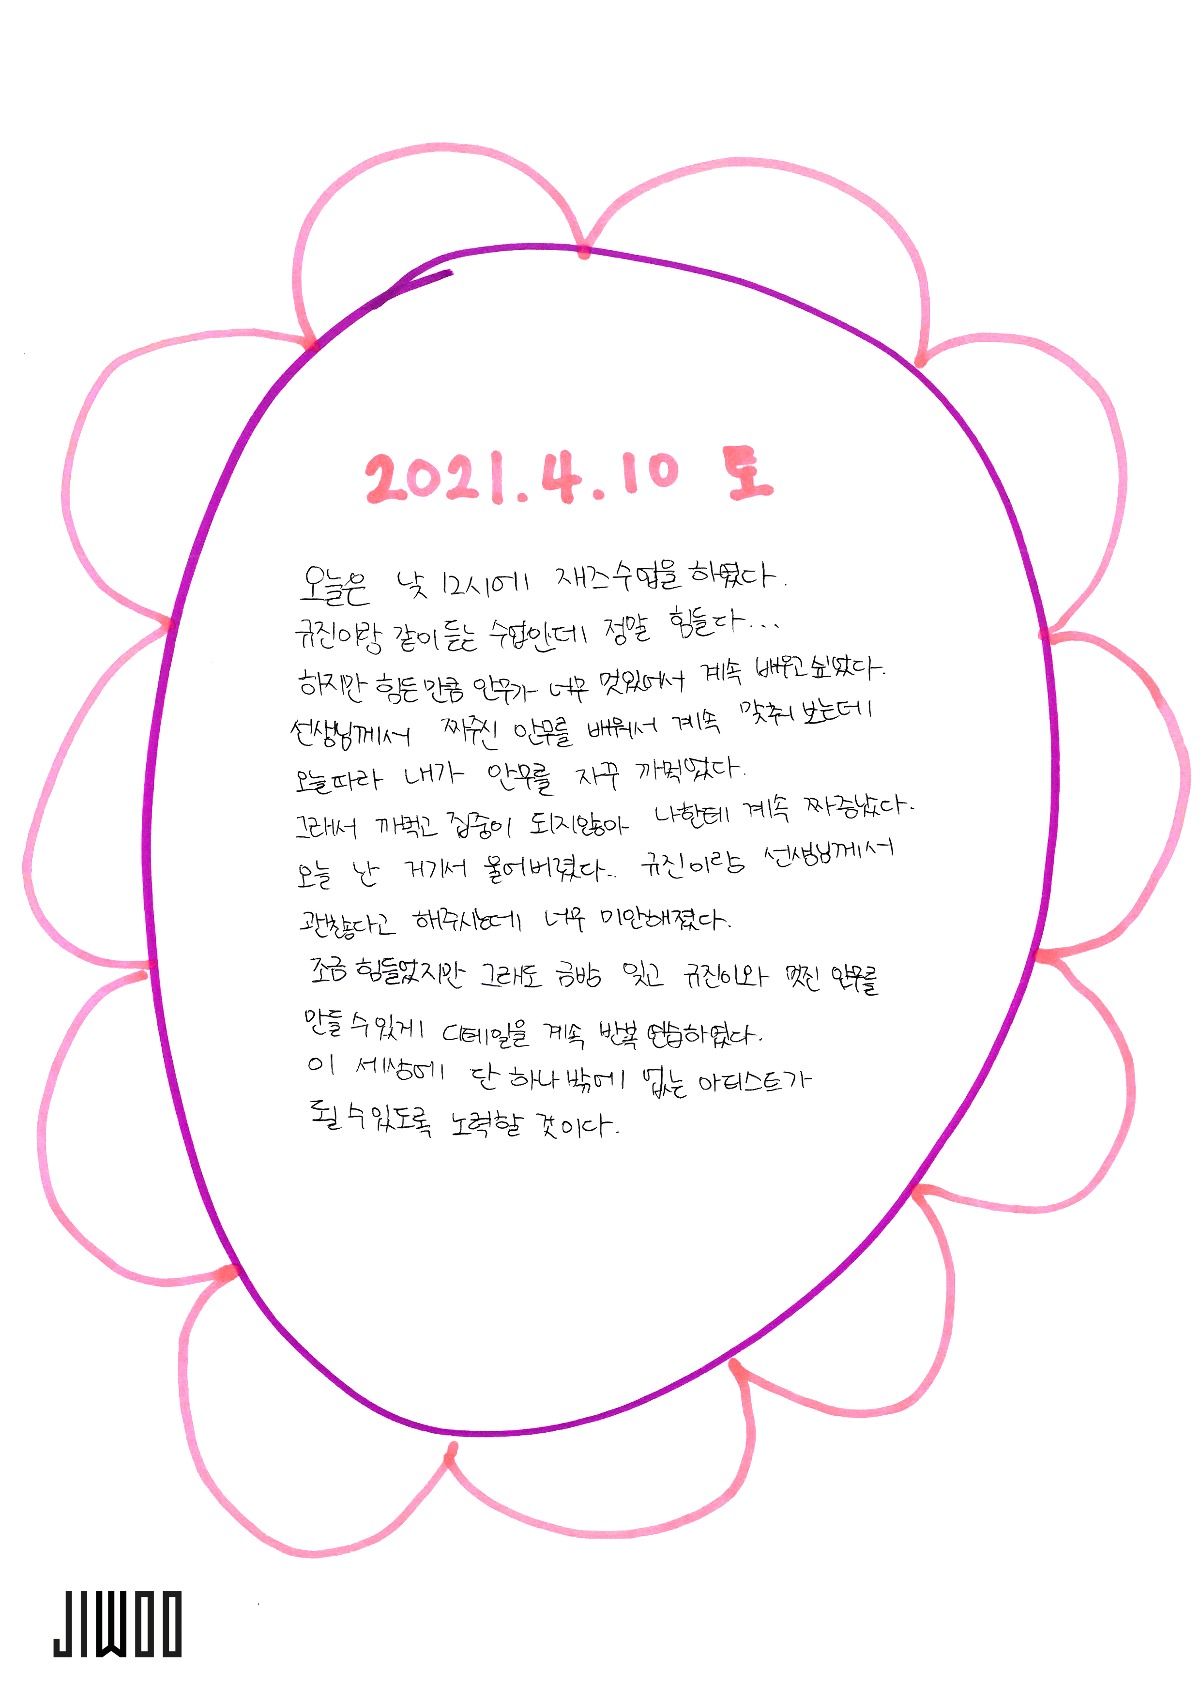 2021.4.10 토
오늘은 낮 12시에 재즈수업을 하였다.
규진이랑 같이 듣는 수업인데 정말 힘들다...
하지만 힘든만큼 안무가 너무 멋있어서 계속 배우고싶었다.
선생님께서 짜주신 안무를 배워서 계속 맞춰 보는데
오늘따라 내가 안무를 자꾸 까먹었다.
그래서 까먹고 집중이 되지않아 나한테 계속 짜증났다.
오늘 난 거기서 울어버렸다.. 규진이랑 선생님께서
괜찮다고 해주시는데 너무 미안해졌다.
조금 힘들었지만 그래도 금방 잊고 규진이와 멋진 안무를
만들 수 있게 디테일을 계속 반복 연습하였다.
이 세상에 단 하나밖에 없는 아티스트가
될 수 있도록 노력할 것이다.
JIWOO